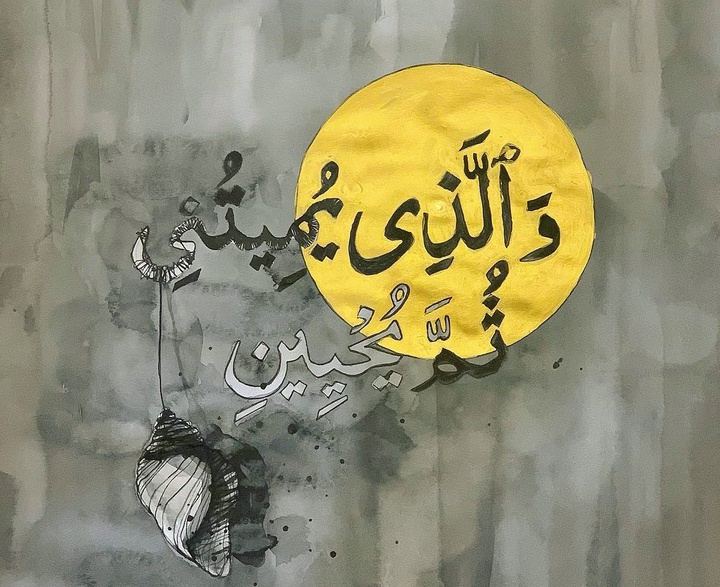 وَٱلَّذِى يُمِيتُنِي
ثُمَّ يُحْيِينِ